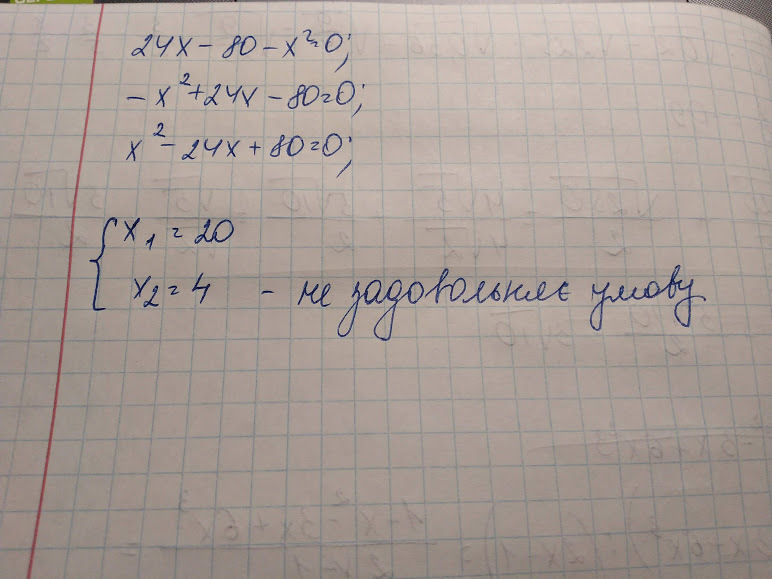 24x - 80 - x² = 0;
- x² + 24x - 80 = 0;
x² - 24x + 80 = 0;
x₁ = 20
x₂ = 4 - не задовольняє умову